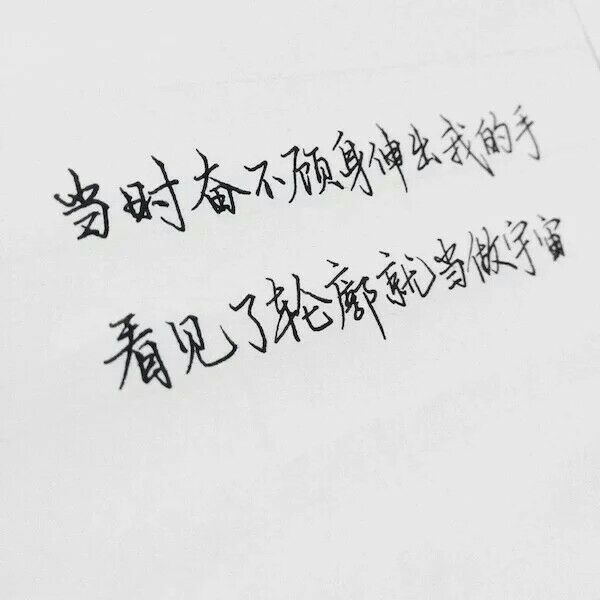 当时奋不顾身伸出我的手
看见了轮廓就当做宇宙